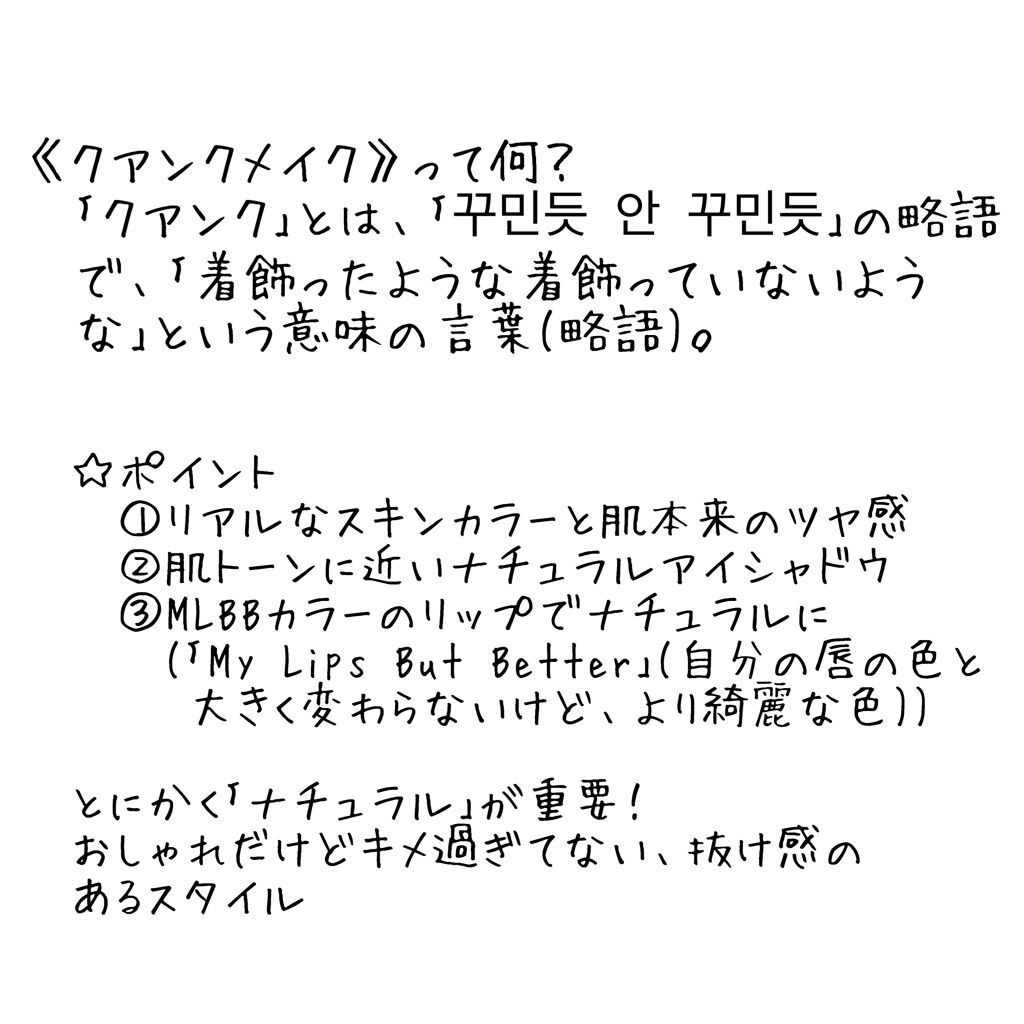 《クアンクメイク》って何?
「クアンク」とは、「꾸민듯 안 꾸민듯」の略語
で、「着飾ったような着飾っていないよう
な」という意味の言葉(略語)。
☆ポイント
①リアルなスキンカラーと肌本来のツヤ感
②肌トーンに近いナチュラルアイシャドウ
③MLBBカラーのリップでナチュラルに
(「My Lips But Better」(自分の唇の色と
大きく変わらないけど、より綺麗な色))
とにかく「ナチュラル」が重要!
おしゃれだけどキメ過ぎてない、抜け感の
あるスタイル